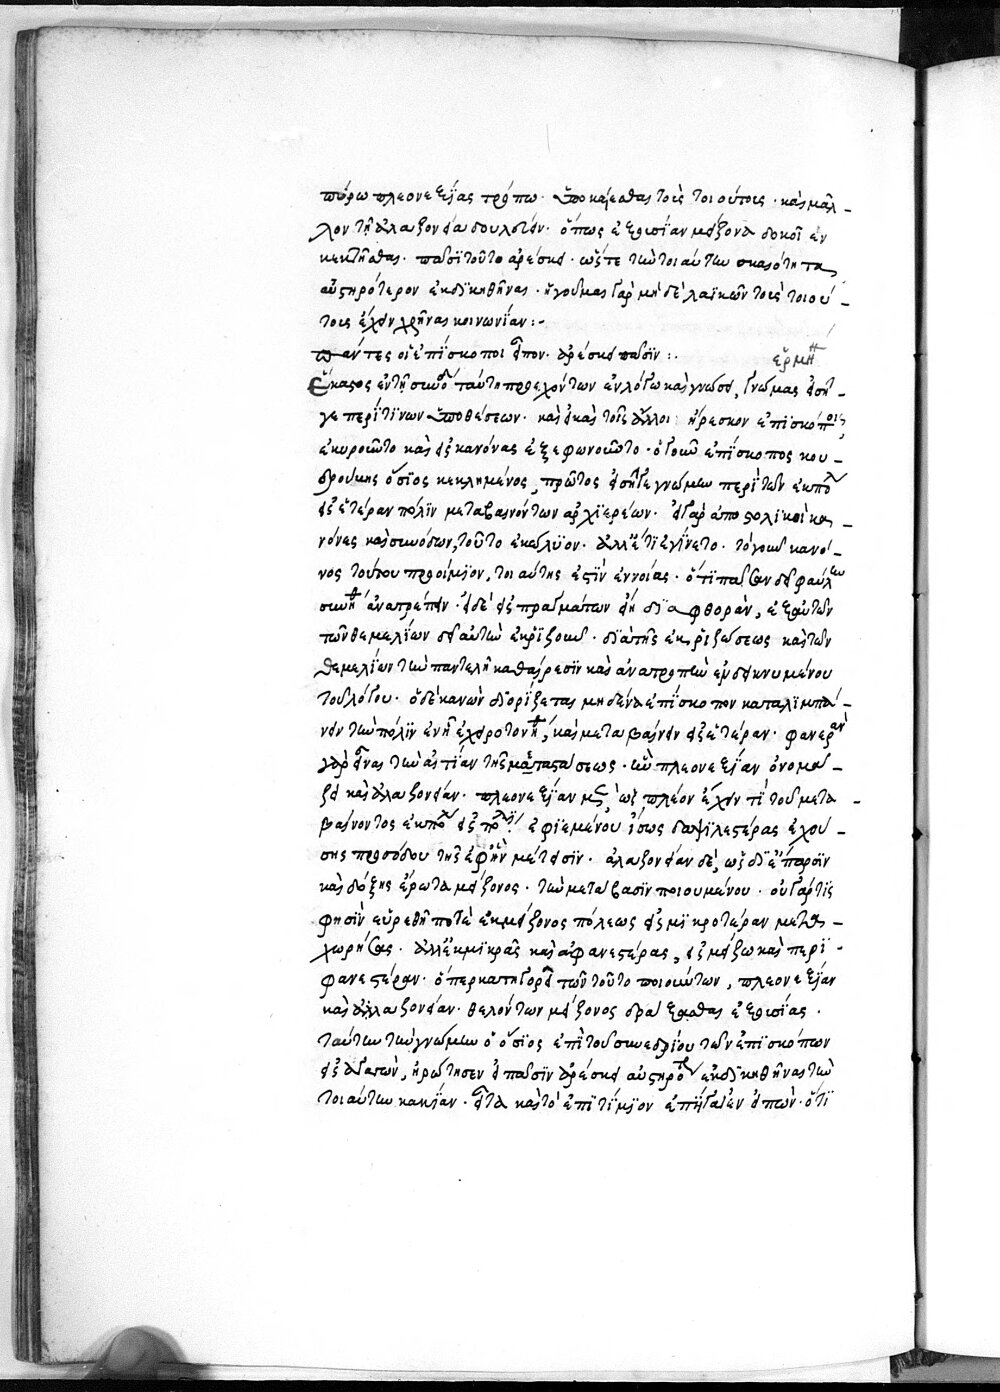 πύρῳ πλεονεξίας τρόπῳ· ὑποκαίεσθαι τοὺς τοιούτους· καὶ μᾶλ-
λον τῇ ἀλαζονείᾳ δουλεύειν· ὅπως ἐξουσίαν μείζονα δοκοῖεν
κεκτῆσθαι· πᾶσι τοῦτο ἀρέσκει· ὥστε τὴν τοιαύτην σκαιότητα
αὐστηρότερον ἐκδικηθῆναι· ἡγοῦμαι γὰρ μηδὲ λαϊκῶν τοὺς τοιού-
τους ἔχειν χρῆναι κοινωνίαν:-
πάντες οἱ ἐπίσκοποι εἶπον· ἀρέσκει πᾶσιν:· ἑρμη
Ἕκαστος ἐν τῇ συνόδ ταύτῃ προεχόντων ἐν λόγῳ καὶ γνώσει, γνώμας εἰσῆ-
γε περί τινων ὑποθέσεων· καὶ εἰ καὶ τοῖς ἄλλοι ἤρεσκον ἐπισκόποις,
ἐκυροῦντο καὶ εἰς κανόνας ἐξεφωνοῦντο· ὁ γοῦν ἐπίσκοπος κου-
δρούπης ὅσιος κεκλημένος, πρῶτος εἰσῆγε γνώμην περὶ τῶν ἐκ πόλ
εἰς ἑτέραν πόλιν μεταβαινόντων ἀρχιερέων· εἰ γὰρ ἀποστολικοὶ κα-
νόνες καὶ συνόδων, τοῦτο ἐκώλυον· ἀλλ' ἔτι ἐγίνετο· τὸ γοῦν κανό-
νος τούτου προοίμιον, τοιαύτης ἐστὶν ἐννοίας· ὅτι πᾶσαν δεῖ φαύλην
συνή ἀνατρέπειν· εἰ δὲ εἰς πραγμάτων εἴη διαφθοράν, ἐξ αὐτῶν
τῶν θεμελίων δεῖ αὐτὴν ἐκριζοῦν· διὰ τῆς ἐκριζώσεως καὶ τῶν
θεμελίων τὴν παντελῆ καθαίρεσιν καὶ ἀνατροπὴν ἐνδεικνυμένου
τοῦ λόγου· ὁ δὲ κανὼν διορίζεται μηδένα ἐπίσκοπον καταλιμπά-
νειν τὴν πόλιν ἐν ᾗ ἐχειροτονή, καὶ μεταβαίνειν εἰς ἑτέραν· φανερὰν
γὰρ εἶναι τὴν αἰτίαν τῆς μεταστάσεως· ἣν πλεονεξίαν ὀνομά-
ζει καὶ ἀλαζονείαν· πλεονεξίαν μὲν, ὡς πλέον ἔχειν τι τοῦ μετα-
βαίνοντος ἐκ πόλ εἰς πόλιν ἐφιεμένου ἴσως δαψιλεστέρας ἐχού-
σης προσόδου τῆς ἐφ' ἣν μέτεισιν· ἀλαζονείαν δέ, ὡς δι' ἔπαρσιν
καὶ δόξης ἔρωτα μείζονος· τὴν μετάβασιν ποιουμένου· οὐ γάρ τις
φησὶν εὑρέθη ποτὲ ἐκ μείζονος πόλεως εἰς μικροτέραν μετα-
χωρήσας· ἀλλ' ἐκ μικρᾶς καὶ ἀφανεστέρας, εἰς μείζω καὶ περι-
φανεστέραν· ὅπερ κατηγορεῖ τῶν τοῦτο ποιούντων, πλεονεξίαν
καὶ ἀλαζονείαν· θελόντων μείζονος δράξασθαι ἐξουσίας·
ταύτην τὴν γνώμην ὁ ὅσιος ἐπὶ τοῦ συνεδρίου τῶν ἐπισκόπων
εἰσάγων, ἠρώτησεν εἰ πᾶσιν ἀρέσκει αὐστηρό ἐκδικηθῆναι τὴν
τοιαύτην κακίαν· εἶτα καὶ τὸ ἐπιτίμιον ἐπήγαγεν εἰπών· ὅτι